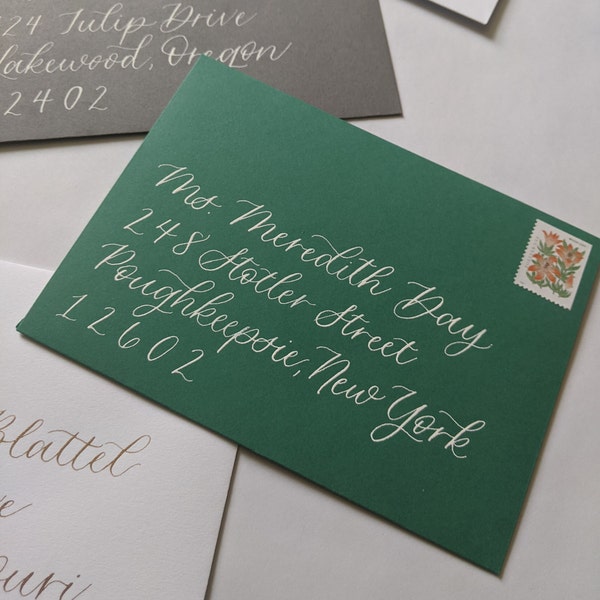 24 Tulip Drive
Lakewood, Oregon
2402
Ms. Meredith Day
248 Stotler Street
Poughkeepsie, New York
12602
Blattel